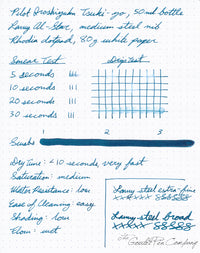 Pilot Iroshizuku Tsuki-yo, 50ml bottle
Lamy Al-Star, medium steel nib
Rhodia dotpad, 80g white paper
Smear Test
Drip Test
5 seconds
10 seconds
20 seconds
30 seconds
1 2 3
Swabs
Dry Time: <10 seconds very fast
Saturation: medium
Water Resistance: low
Ease of Cleaning: easy
Shading: low
Flow: wet
Lamy steel extra-fine
Lamy steel broad
The Goulet Pen Company